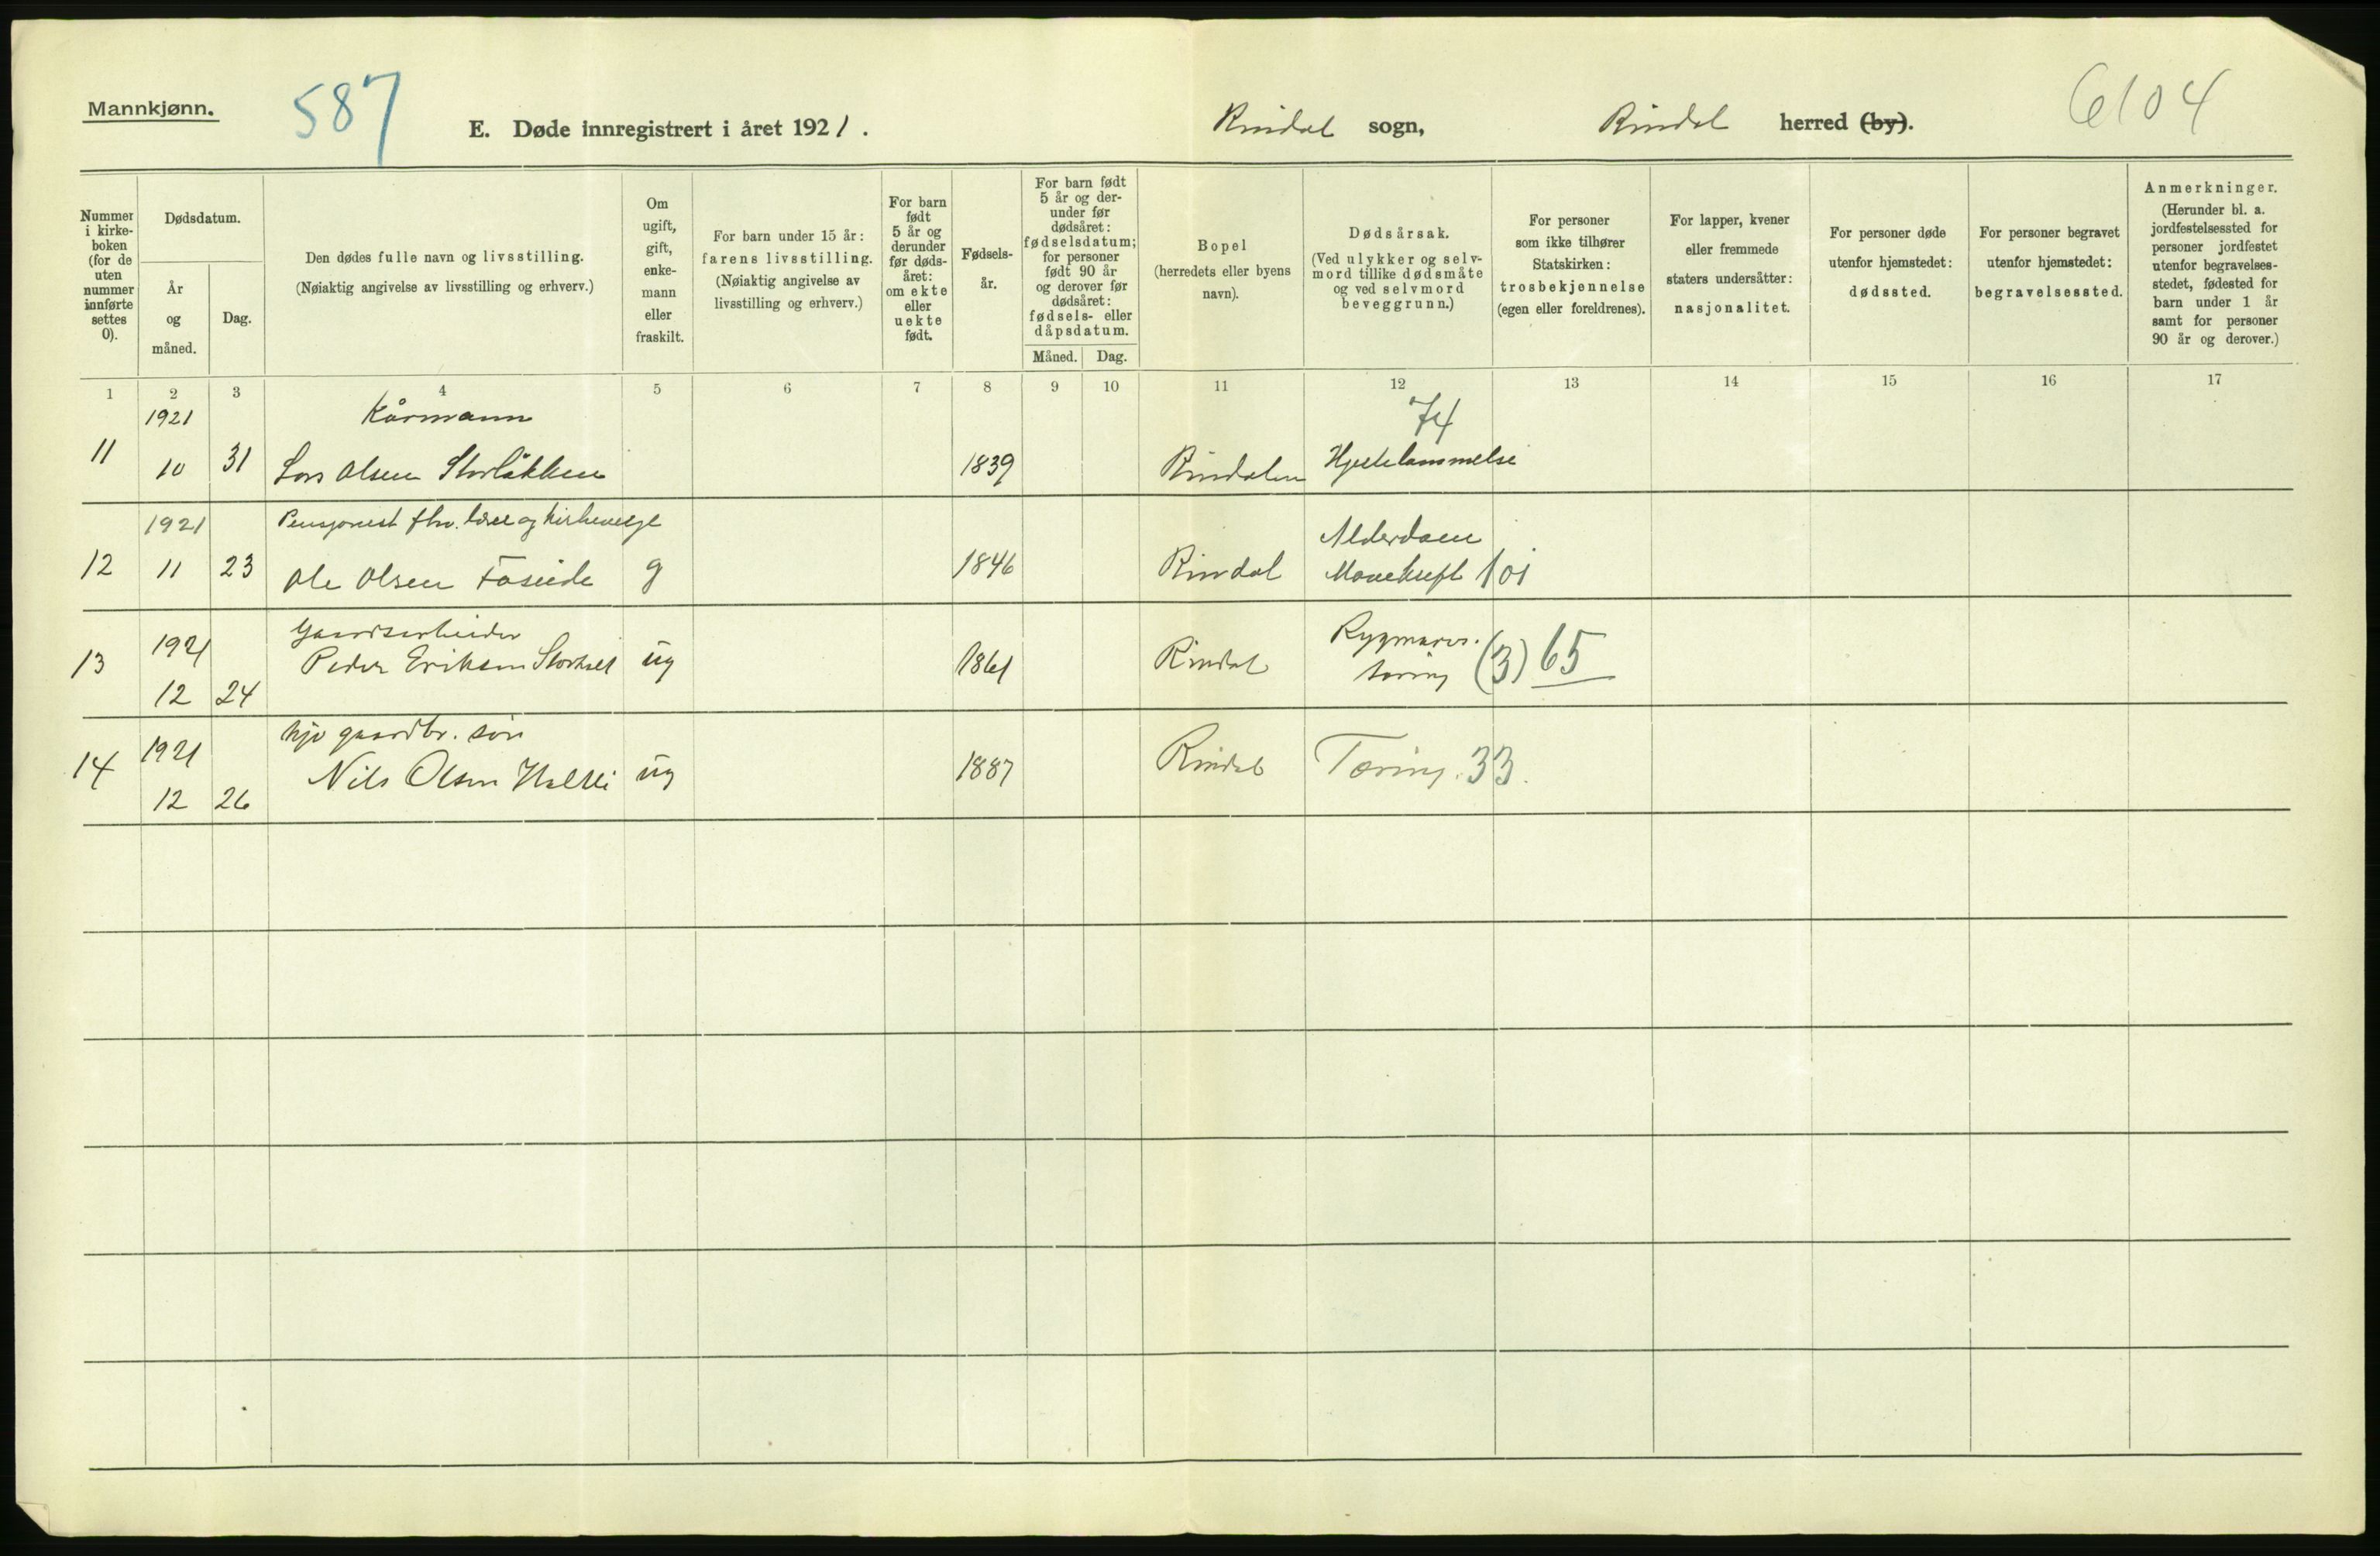 Mannkjønn.
587
E. Døde innregistrert i året 1921.
Rindal sogn,
Rindal herred (by).
6104
Nummer i kirke-boken (for de uten nummer innførte settes 0).
Dødsdatum.
År og måned.
Dag.
Den dødes fulle navn og livsstilling.
(Nøiaktig angivelse av livsstilling og erhverv.)
Om ugift, gift, enke-mann eller fraskilt.
For barn under 15 år: farens livsstilling.
(Nøiaktig angivelse av livsstilling og erhverv.)
For barn født 5 år og derunder før døds-året: om ekte eller uekte født.
Fødsels-år.
For barn født 5 år og der-under før dødsåret: fødselsdatum; for personer født 90 år og derover før dødsåret: fødsels- eller dåpsdatum.
Måned.
Dag.
Bopel
(herredets eller byens navn).
Dødsårsak.
(Ved ulykker og selv-mord tillike dødsmåte og ved selvmord beveggrunn.)
For personer som ikke tilhører Statskirken: trosbekjennelse (egen eller foreldrenes).
For lapper, kvener eller fremmede staters undersåtter: nasjonalitet.
For personer døde utenfor hjemstedet: dødssted.
For personer begravet utenfor hjemstedet: begravelsessted.
Anmerkninger.
(Herunder bl. a. jordfestelsessted for personer jordfestet utenfor begravelses-stedet, fødested for barn under 1 år samt for personer 90 år og derover.)
1 2 3 4 5 6 7 8 9 10 11 12 13 14 15 16 17
1921 Kårmann 74
11 10 31 Lars Olsen Storløkken 1839 Rindalen Hjertelammelse
1921 Pensjonist fhv. lærer og kirkeverge Alderdom
12 11 23 Ole Olsen g 1846 Rindal Mavekreft 101
1921 Gaardsarbeider Rygmarvs.
13 12 24 Peder Eriksen ug 1861 Rindal tæring (3) 65
1921 hjv gaardbr. søn
14 12 26 Nils Olsen ug 1887 Rindal Tæring. 33.